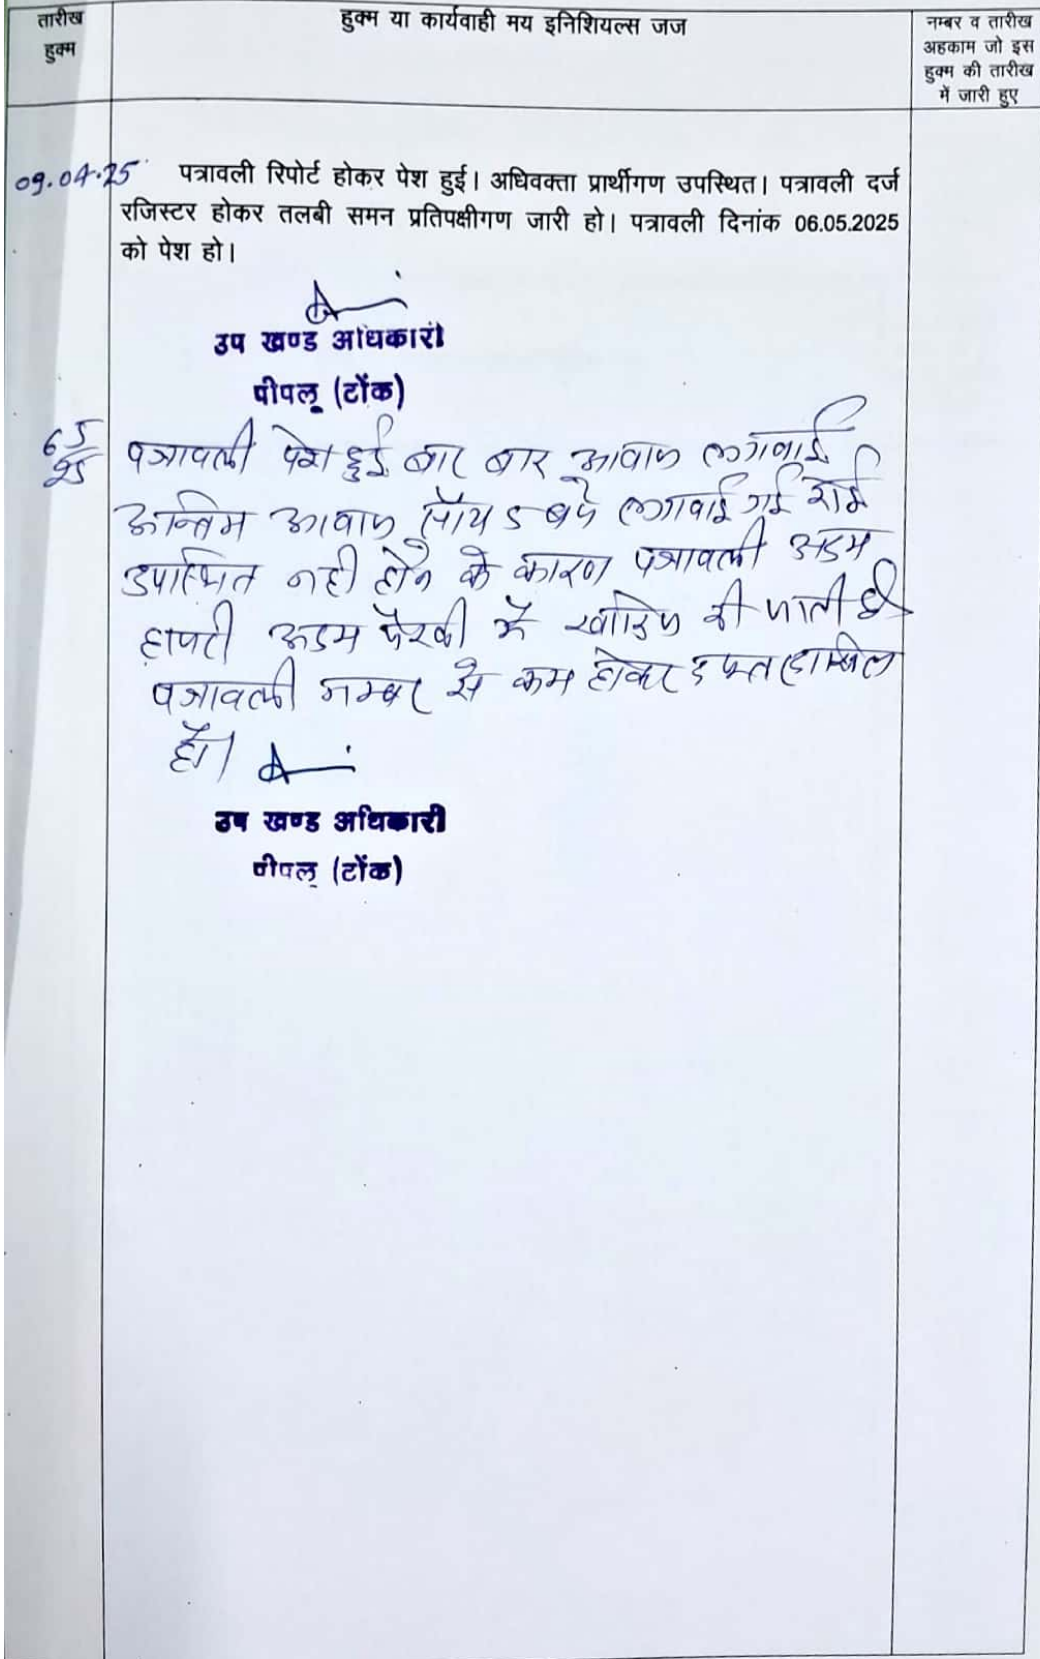 तारीख
हुक्म
हुक्म या कार्यवाही मय इनिशियल्स जज
नम्बर व तारीख
अहकाम जो इस
हुक्म की तारीख
में जारी हुए
09.04.25 पत्रावली रिपोर्ट होकर पेश हुई। अधिवक्ता प्रार्थीगण उपस्थित। पत्रावली दर्ज
रजिस्टर होकर तलबी समन प्रतिपक्षीगण जारी हो। पत्रावली दिनांक 06.05.2025
को पेश हो।
उप खण्ड अधिकारी
पीपलू (टोंक)
6 5 25 पत्रावली पेश हुई बार बार आवाज लगवाई
अन्तिम आवाज सॉय 5 बजे लगवाई गई कोई
उपस्थित नही होने के कारण पत्रावली अदम
हाजरी अदम पैरवी में खारिज की जाती है
पत्रावली नम्बर से कम होकर दफ्तर दाखिल
हो।
उप खण्ड अधिकारी
पीपलू (टोंक)